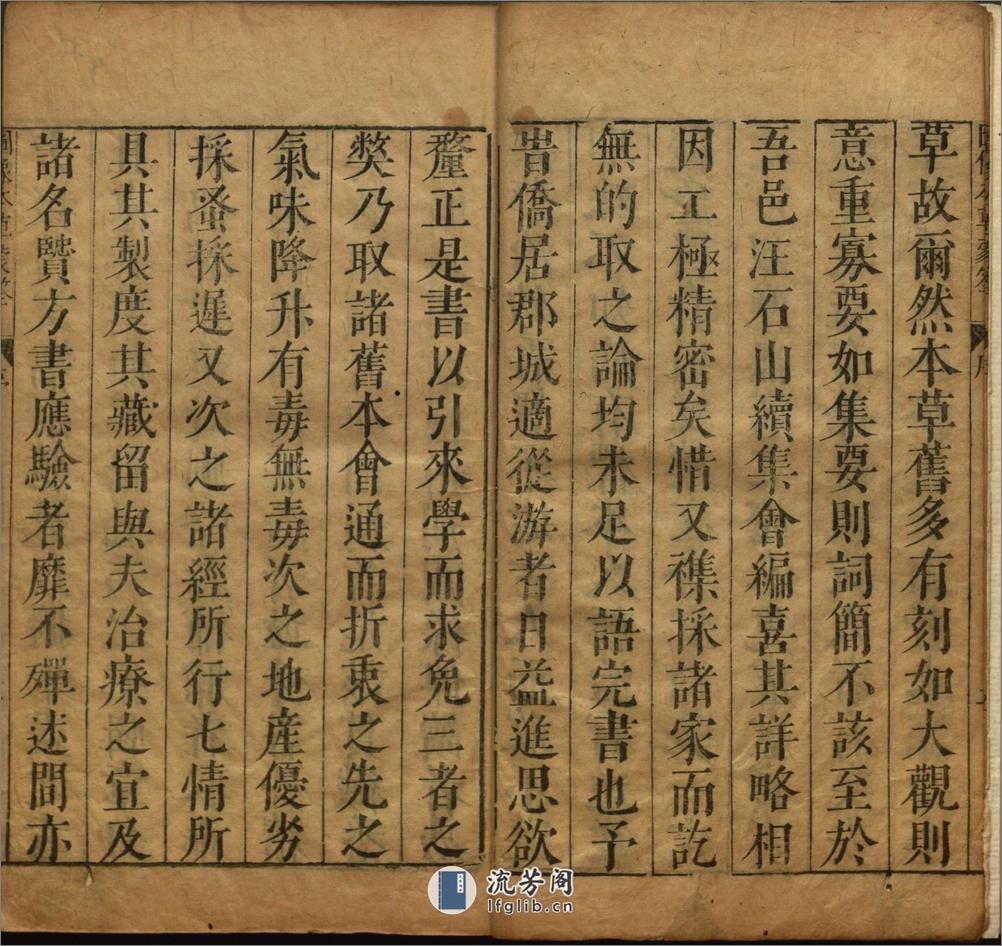 草故爾然本草舊多有刻如大觀則
意重寡要如集要則詞簡不該至於
吾邑汪石山續集會編喜其詳略相
因工極精密矣惜又襍採諸家而訖
無的取之論均未足以語完書也予
昔僑居郡城適從游者日益進思欲
釐正是書以引來學而求免三者之
獘乃取諸舊本會通而折衷之先之
氣味降升有毒無毒次之地產優劣
採蚤採遲又次之諸經所行七情所
具其製度其藏留與夫治療之宜及
諸名賢方書應驗者靡不殫述間亦
流芳阁
lfglib.cn